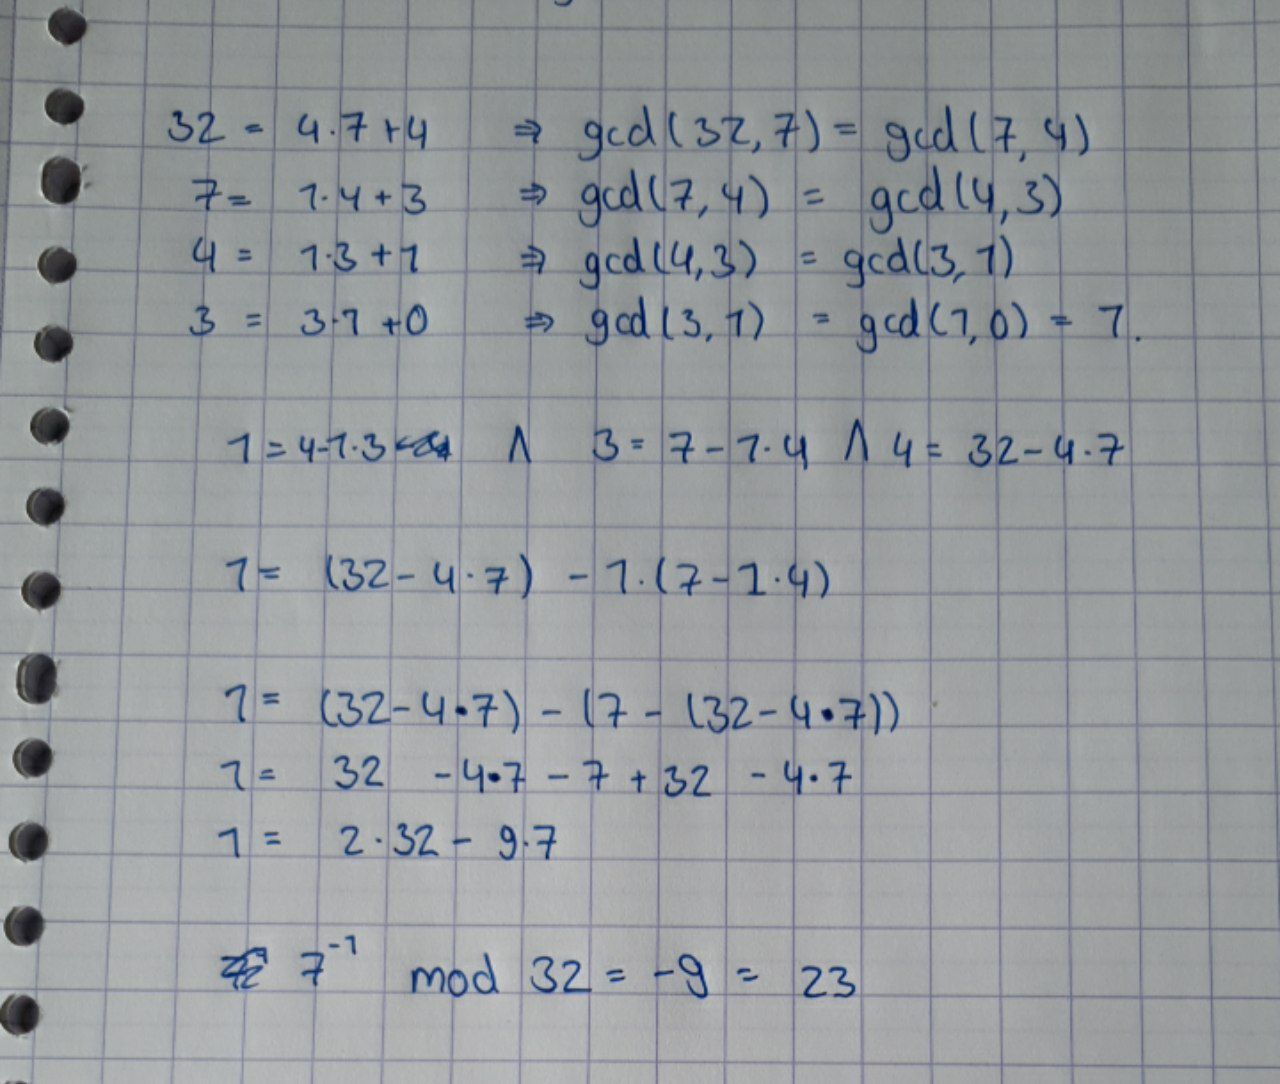 32 = 4·7+4 ⇒ gcd(32,7) = gcd(7,4)
7 = 1·4+3 ⇒ gcd(7,4) = gcd(4,3)
4 = 1·3+1 ⇒ gcd(4,3) = gcd(3,1)
3 = 3·1+0 ⇒ gcd(3,1) = gcd(1,0) = 1.
1 = 4-1·3 ∧ 3 = 7-1·4 ∧ 4 = 32-4·7
1 = (32-4·7) -1·(7-1·4)
1 = (32-4·7) - (7 - (32-4·7))
1 = 32 -4·7 -7 +32 -4·7
1 = 2·32 - 9·7
7⁻¹ mod 32 = -9 = 23